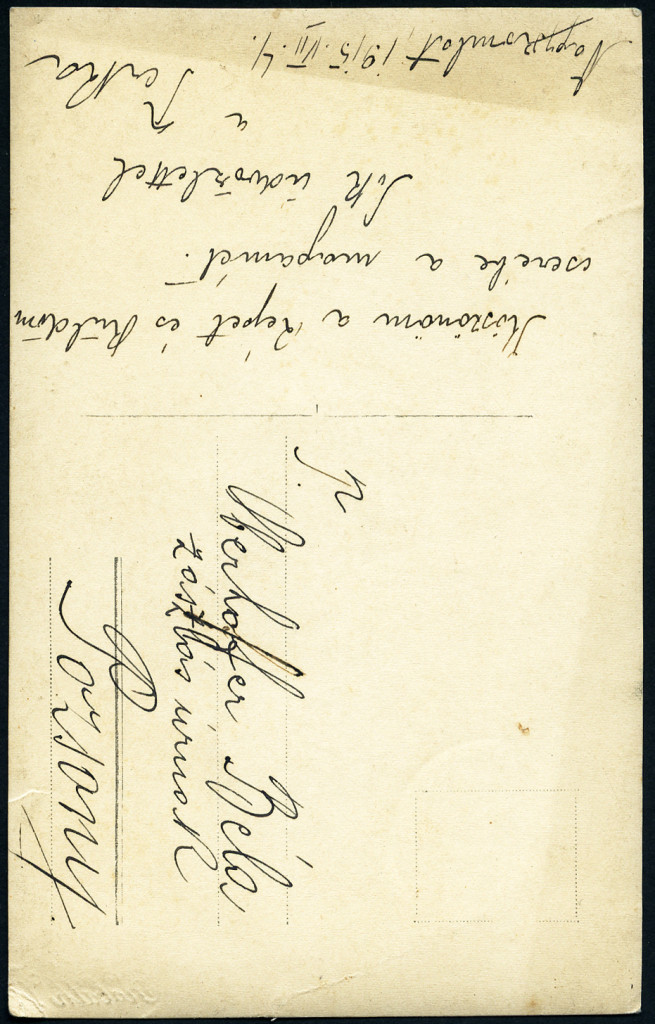 Nagyszombat, 1915. VII. 4.
Köszönöm a képet és küldöm
cserébe a magamét.
Sok üdvözlettel
a Ferkó
N.
Oberhoffer Béla
zászlós úrnak
Pozsony